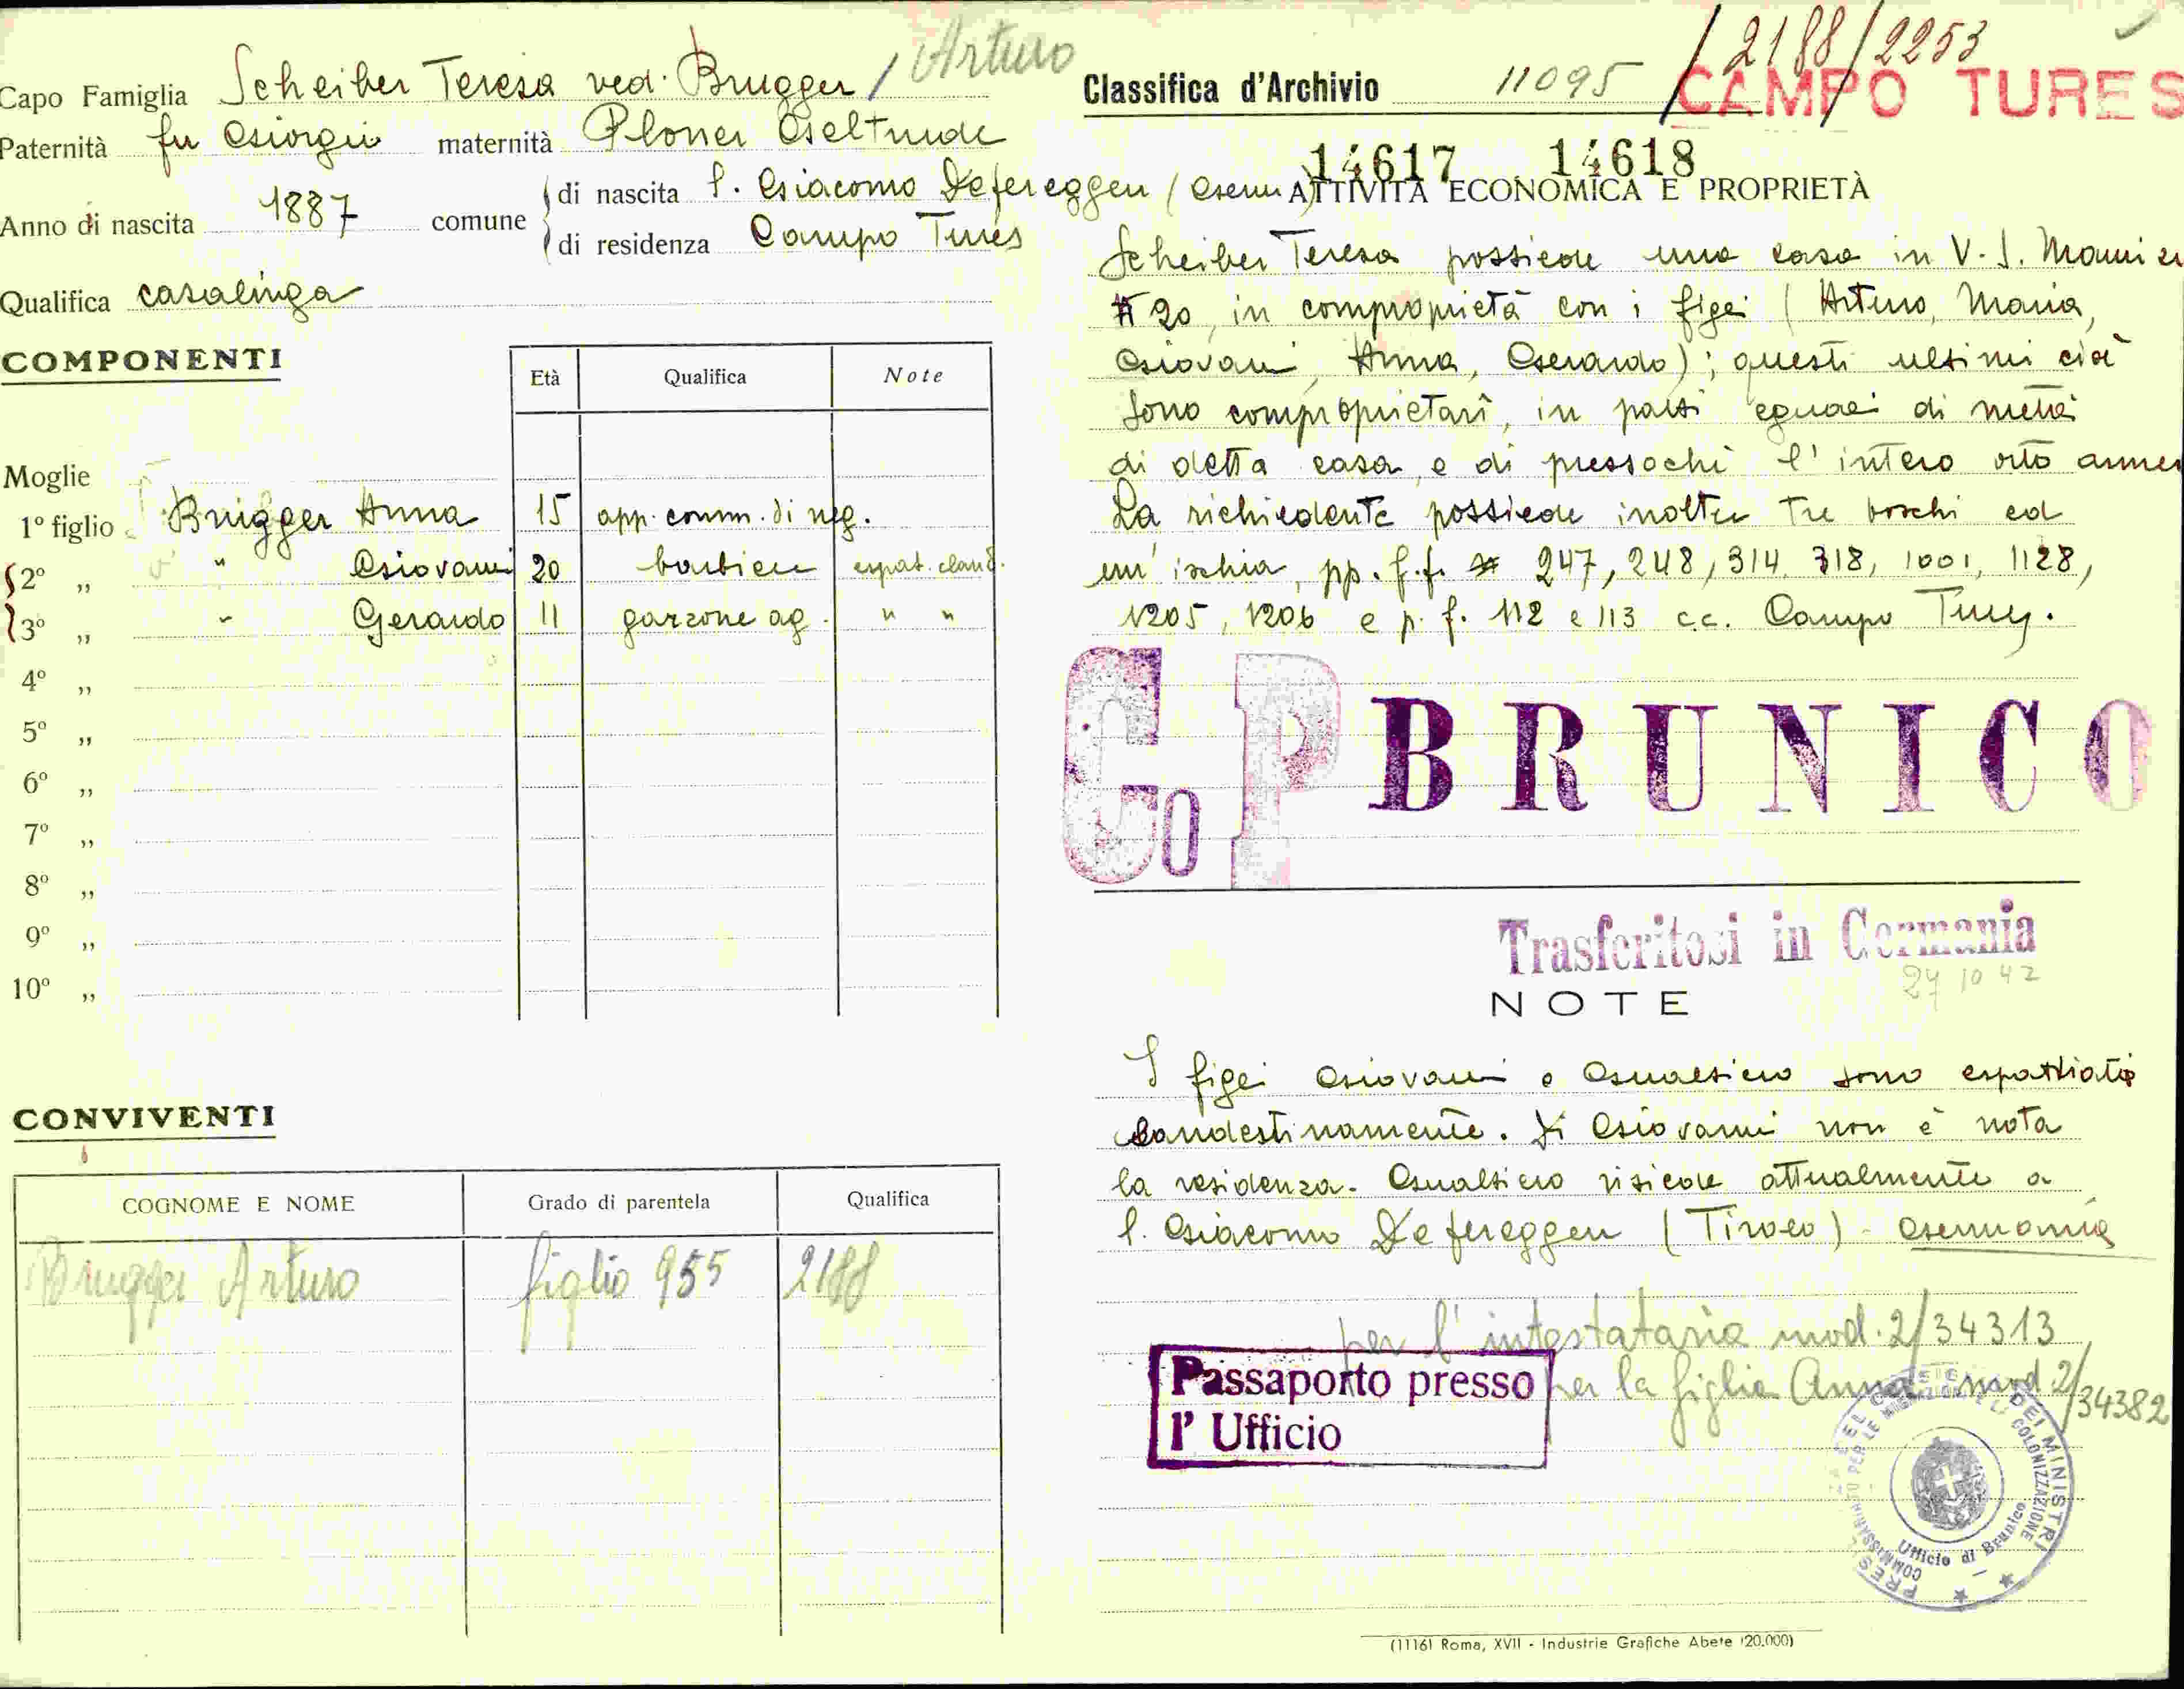 Capo Famiglia Scheiber Teresa ved. Brugger / Arturo
Paternità fu Giorgio maternità Ploner Geltrude
Anno di nascita 1887 comune
di nascita S. Giacomo Defereggen (Germ.)
di residenza Campo Tures
Qualifica casalinga
COMPONENTI
Età Qualifica Note
Moglie
1º figlio Brugger Anna 15 app. comm. di neg.
2º „ " Giovanni 20 barbiere espat. cland.
3º „ " Gerardo 11 garzone ag. " "
4º „
5º „
6º „
7º „
8º „
9º „
10º „
CONVIVENTI
COGNOME E NOME Grado di parentela Qualifica
Brugger Arturo figlio 955 2188
Classifica d'Archivio 11095 / 2188 / 2253
CAMPO TURES
14617 14618
ATTIVITÀ ECONOMICA E PROPRIETÀ
Scheiber Teresa possiede una casa in V. S.
20, in comproprietà con i figli (Arturo, Maria,
Giovanni, Anna, Gerardo); questi ultimi cioè
sono comproprietari, in parti eguali di metà
di detta casa e di pressochè l'intero orto
La richiedente possiede inoltre tre boschi ed
un'ischia, pp. f.f. 247, 248, 314, 318, 1001, 1128,
1205, 1206 e p. f. 112 e 113 c.c. Campo Tures.
Co P BRUNICO
Trasferitosi in Germania
27 10 42
NOTE
I figli Giovanni e Gualtiero sono espatriati
clandestinamente. Di Giovanni non è nota
la residenza. Gualtiero risiede attualmente a
S. Giacomo Defereggen (Tirolo) - Germania
per l'intestataria mod. 2/34313
per la figlia Anna mod 2/34382
Passaporto presso
l' Ufficio
PRES. DEL CONSIGLIO DEI MINISTRI
COMMISSARIATO PER LE MIGRAZIONI E LA COLONIZZAZIONE
Ufficio di Brunico
(1116) Roma, XVII - Industrie Grafiche Abete (20.000)